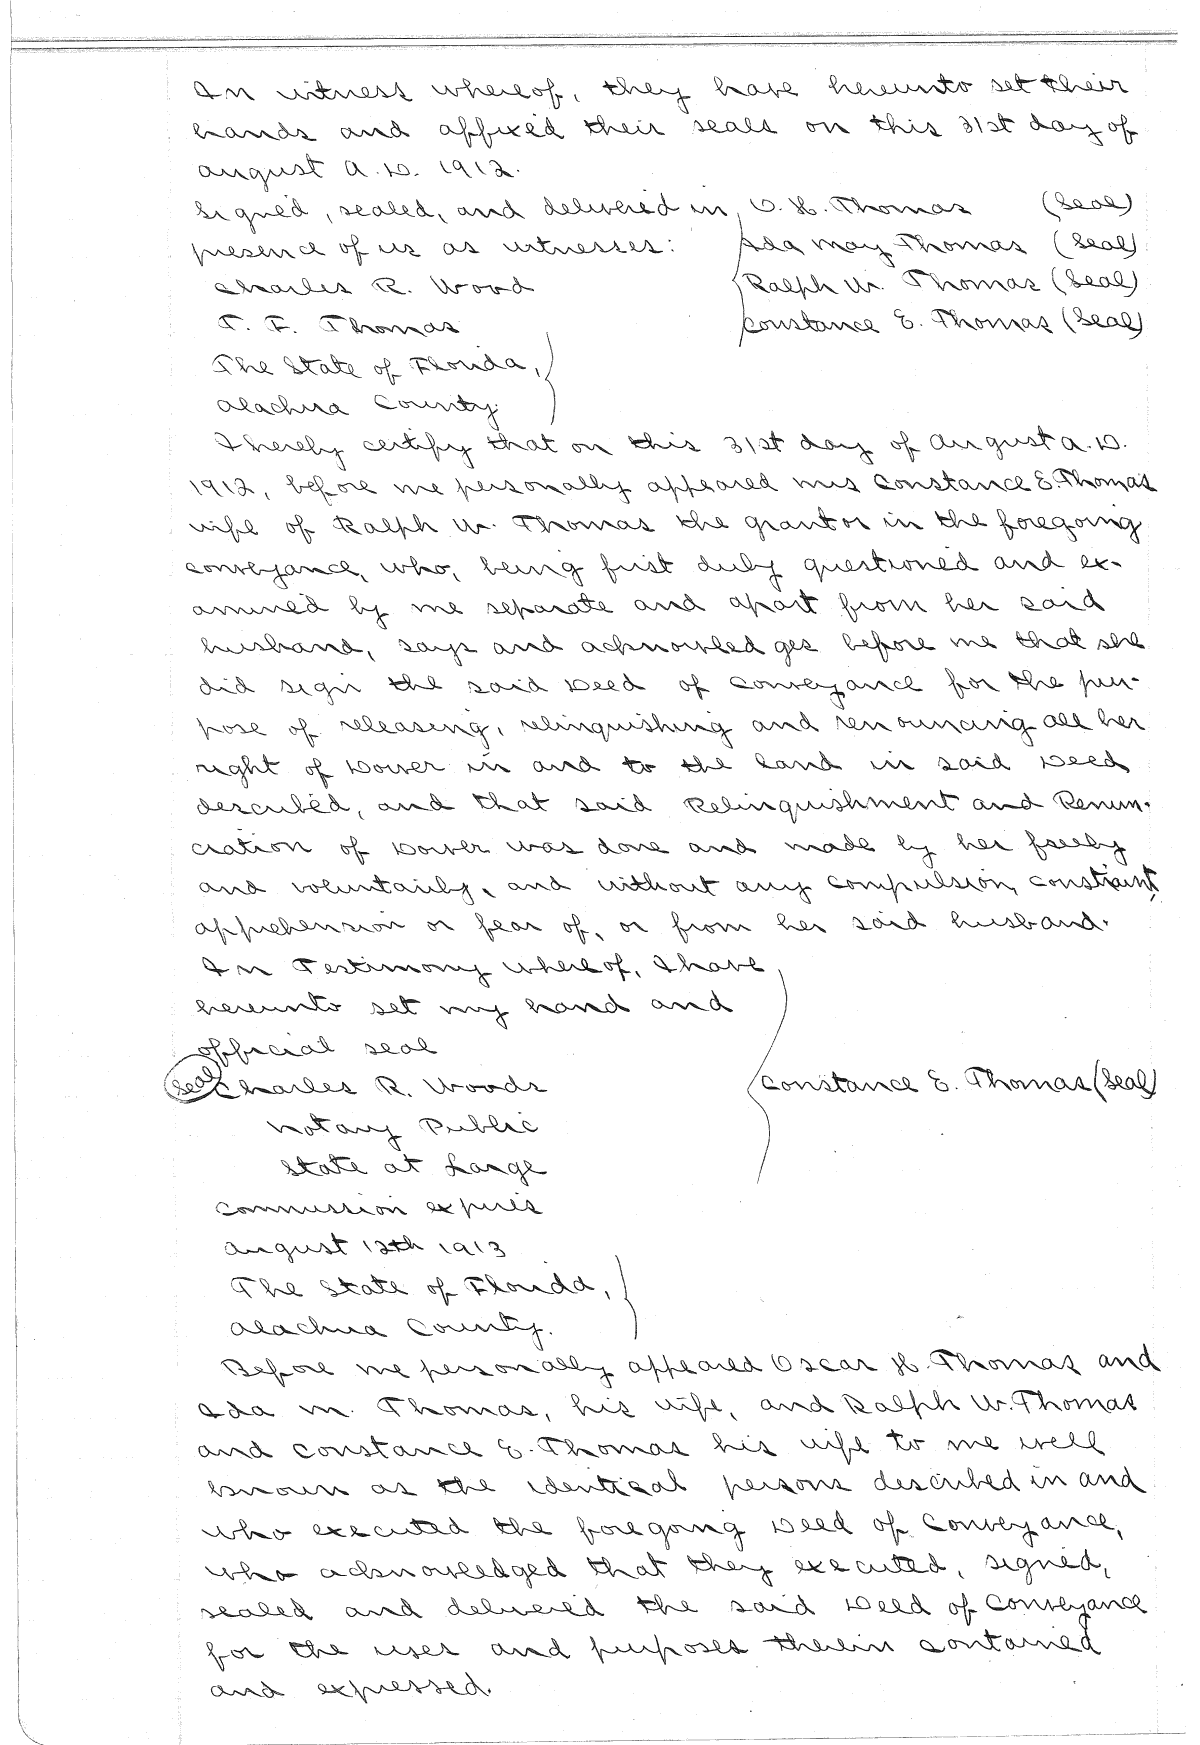 In witness whereof, they have hereunto set their
hands and affixed their seals on this 31st day of
august A.D. 1912.
Signed, sealed, and delivered in O. H. Thomas (Seal)
presence of us as witnesses: Ada May Thomas (Seal)
Charles R. Wood Ralph W. Thomas (Seal)
T. F. Thomas Constance E. Thomas (Seal)
The State of Florida,
Alachua County.
I hereby certify that on this 31st day of August A.D.
1912, before me personally appeared Mrs Constance E. Thomas
wife of Ralph W. Thomas the grantor in the foregoing
conveyance, who, being first duly questioned and ex-
amined by me separate and apart from her said
husband, says and acknowledges before me that she
did sign the said Deed of Conveyance for the pur-
pose of releasing, relinquishing and renouncing all her
right of Dower in and to the land in said Deed
described, and that said Relinquishment and Renun-
ciation of Dower was done and made by her freely
and voluntarily, and without any compulsion, constraint,
apprehension or fear of, or from her said husband.
In Testimony whereof, I have
hereunto set my hand and
official seal
(Seal) Charles R. Woods Constance E. Thomas (Seal)
Notary Public
State at Large
Commission expires
August 12th 1913
The State of Florida,
Alachua County.
Before me personally appeared Oscar H. Thomas and
Ada M. Thomas, his wife, and Ralph W. Thomas
and Constance E. Thomas his wife to me well
known as the identical persons described in and
who executed the foregoing Deed of Conveyance,
who acknowledged that they executed, signed,
sealed and delivered the said Deed of Conveyance
for the uses and purposes therein contained
and expressed.